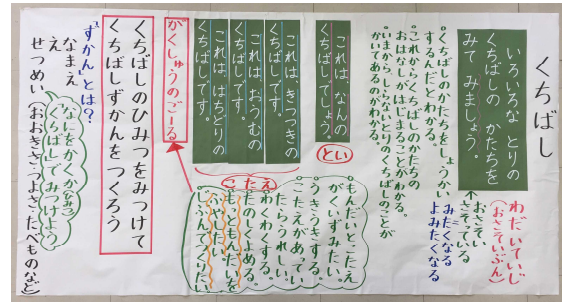 くちばし
いろいろな とりの
くちばしの かたちを
みて みましょう。
わだいていじ
（おさそいぶん）
おさそい
さそっている
みたくなる
よみたくなる
・くちばしのかたちをしょうかい
するんだとわかる。
・これからくちばしのかたちの
おはなしがはじまることがわかる。
・いまからしらないとりのくちばしのことが
かいてあるのかわかる。
これは、なんの
くちばしでしょう。
とい
これは、きつつきの
くちばしです。
これは、おうむの
くちばしです。
これは、はちどりの
くちばしです。
こたえ
・もんだいと、こたえ
がくいずみたい。
・うきうきする。
・こたえがあってい
たらうれしい。
・わくわくする。
・たのしくよめる。
・もっともんだいを
ふやしたい。
・じぶんでつくりたい
がくしゅうのごーる
くちばしのひみつをみつけて
くちばしずかんをつくろう
"ずかん"とは？
なまえ
え
せつめい（おおきさ・つよさ・たべものなど）
なにをかくか（ひみつ）
くちばしでみつけよう